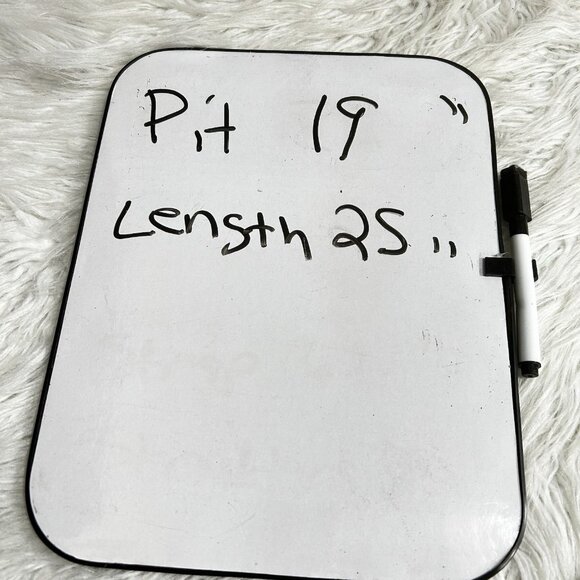 Pit 19 "
Length 25 "